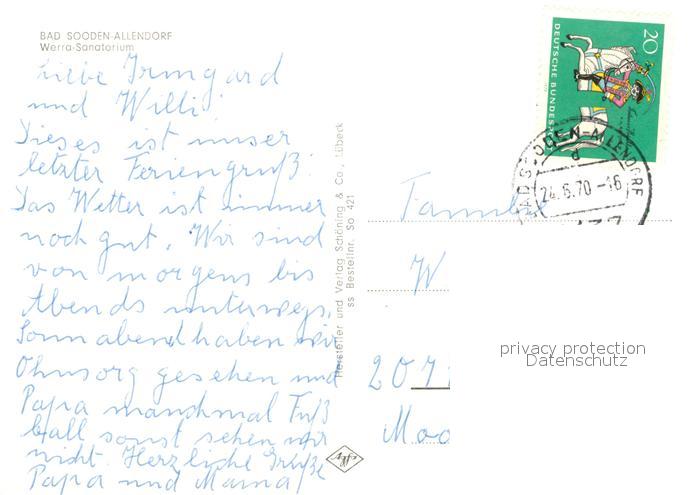 BAD SOODEN-ALLENDORF
Werra-Sanatorium
Liebe Irmgard
und Willi!
Dieses ist unser
letzter Feriengruß.
Das Wetter ist immer
noch gut. Wir sind
von morgens bis
Abends unterwegs.
Sonnabend haben wir
Ohnsorg gesehen und
Papa manchmal Fuß
ball sonst sehen wir
nicht. Herzliche Grüße
Papa und Mama
Hersteller und Verlag Schöning & Co., Lübeck
ss Bestellnr. So 421
20
DEUTSCHE BUNDESP
BAD SOODEN-ALLENDORF
d
24.6.70-16
Famili
W
207
Moo
privacy protection
Datenschutz